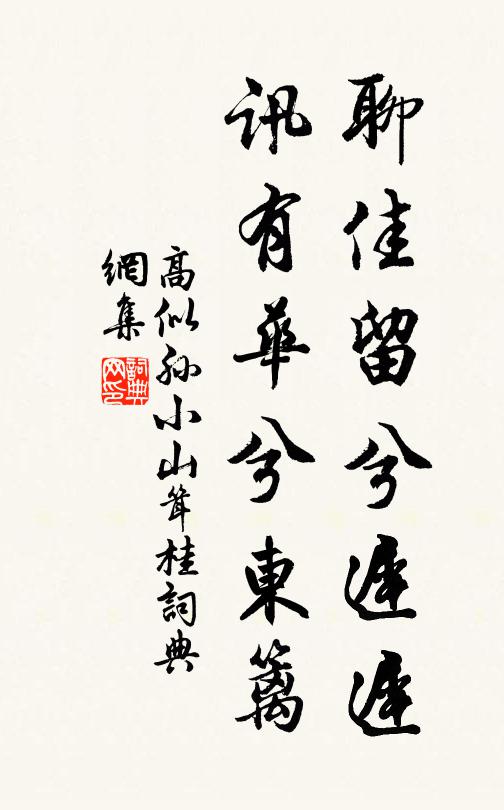 聊佳留兮遲遲
訊有華兮東籬
高似孫小山聳桂詞典
網集
詞典
网印